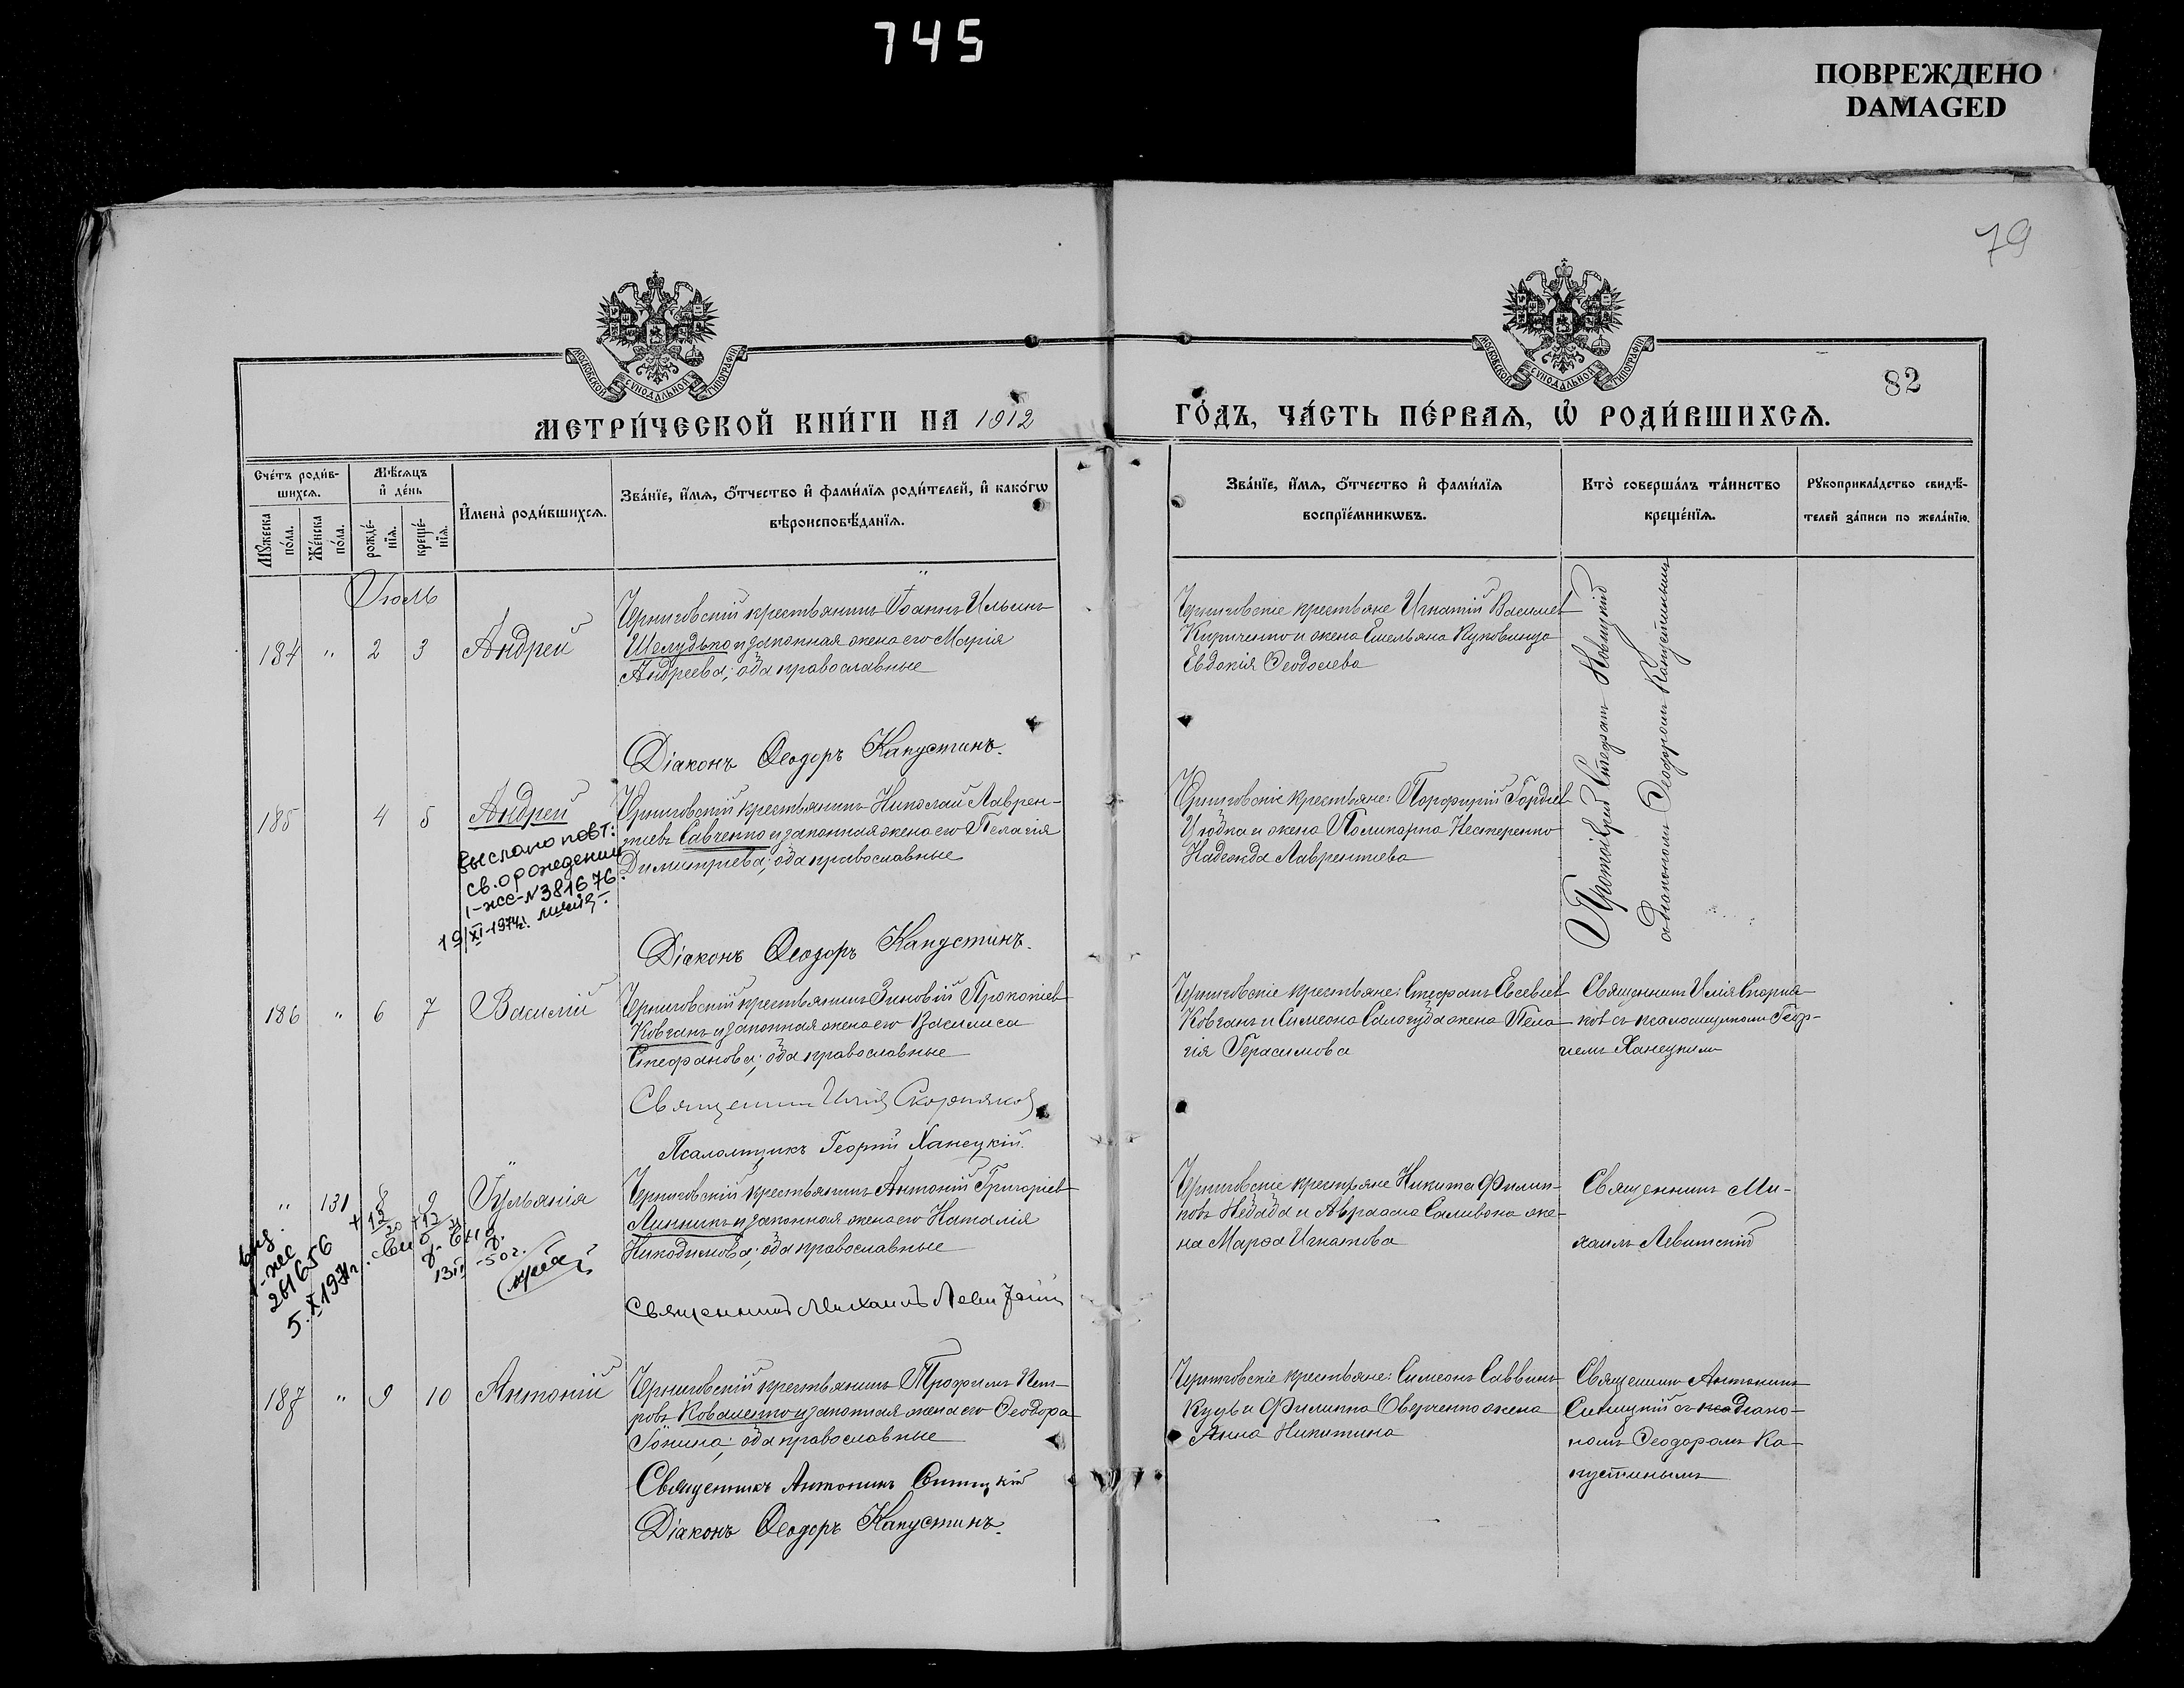 745
ПОВРЕЖДЕНО
DAMAGED
79
82
МОСКОВСКОЙ СѴНОДАЛЬНОЙ ТИПОГРАФІИ
МОСКОВСКОЙ СѴНОДАЛЬНОЙ ТИПОГРАФІИ
МЕТРИ́ЧЕСКОЙ КНИ́ГИ НА 1912
ГО́ДЪ, ЧА́СТЬ ПЕ́РВАѦ, Ѡ҆ РОДИ́ВШИХСѦ.
Сче́тъ роди́в-
шихсѧ.
Мꙋ́жеска по́ла.
Же́нска по́ла.
Мѣ́сѧцъ
и҆ де́нь
рожде́-
нїѧ.
креще́-
нїѧ.
И҆мена̀ роди́вшихсѧ.
Зва́нїе, и҆́мѧ, ѻ҆́тчество и҆ фами́лїѧ роди́телей, и҆ како́гѡ
вѣроисповѣ́данїѧ.
Зва́нїе, и҆́мѧ, ѻ҆́тчество и҆ фами́лїѧ
воспрїе́мникѡвъ.
Кто̀ соверша́лъ та́инство
креще́нїѧ.
Рꙋкоприкла́дство свидѣ́-
телей за́писи по жела́нїю.
Іюль
184 " 2 3 Андрей
Черниговскій крестьянинъ Іоаннъ Ильинъ
Шелудько и законная жена его Марія
Андреева; оба православные
Діаконъ Ѳеодоръ Капустинъ.
Черниговскіе крестьяне Игнатій Васильев
Кириченко и жена Емельяна Куковинца
Евдокія Ѳеодосіева
Протоіерей Стефанъ Новицкій
с діакономъ Ѳеодоромъ Капустинымъ
185 4 5 Андрей
Черниговскій крестьянинъ Николай Лаврен-
тіевъ Савченко и законная жена его Пелагія
Димитріева; оба православные
выслано повт.
св. о рождении
I-жс-№381676
19/XI-1974г.
Діаконъ Ѳеодоръ Капустинъ.
Черниговскіе крестьяне: Порфирій Гордіев
и жена Поликарпа Нестеренко
Надежда Лаврентіева
186 " 6 7 Василій
Черниговскій крестьянинъ Зиновій Прокопіев
Ковганъ и законная жена его Василиса
Стефанова; оба православные
Священникъ Илія Скорняков
Псаломщикъ Георгій Ханецкій.
Черниговскіе крестьяне: Стефанъ Евсевіев
Ковганъ и Симеона Салогуба жена Пела
гія Герасимова
Священникъ Илія Скорня
ковъ съ псаломщикомъ Геор-
гіемъ Ханецкимъ
" 131 8 9 Іуліанія
Черниговскій крестьянинъ Антоній Григоріев
Линникъ и законная жена его Наталія
Никодимова; оба православные
I-жс
261656
5.X.1971г.
13
-50г.
Священникъ Михаилъ Левитскій
Черниговскіе крестьяне Никита Филип-
повъ Недбада и Авраама Саливона же-
на Марѳа Игнатова
Священникъ Ми-
хаилъ Левитскій
187 " 9 10 Антоній
Черниговскій крестьянинъ Трофимъ Пет-
ровъ Коваленко и законная жена его Ѳеодора
Іонина; оба православные
Священникъ Антонинъ Синицкій
Діаконъ Ѳеодоръ Капустинъ.
Черниговскіе крестьяне: Симеонъ Саввинъ
Куць и Филиппа Оверченко жена
Анна Никитина
Священникъ Антонинъ
Синицкій съ діако-
номъ Ѳеодоромъ Ка-
пустинымъ